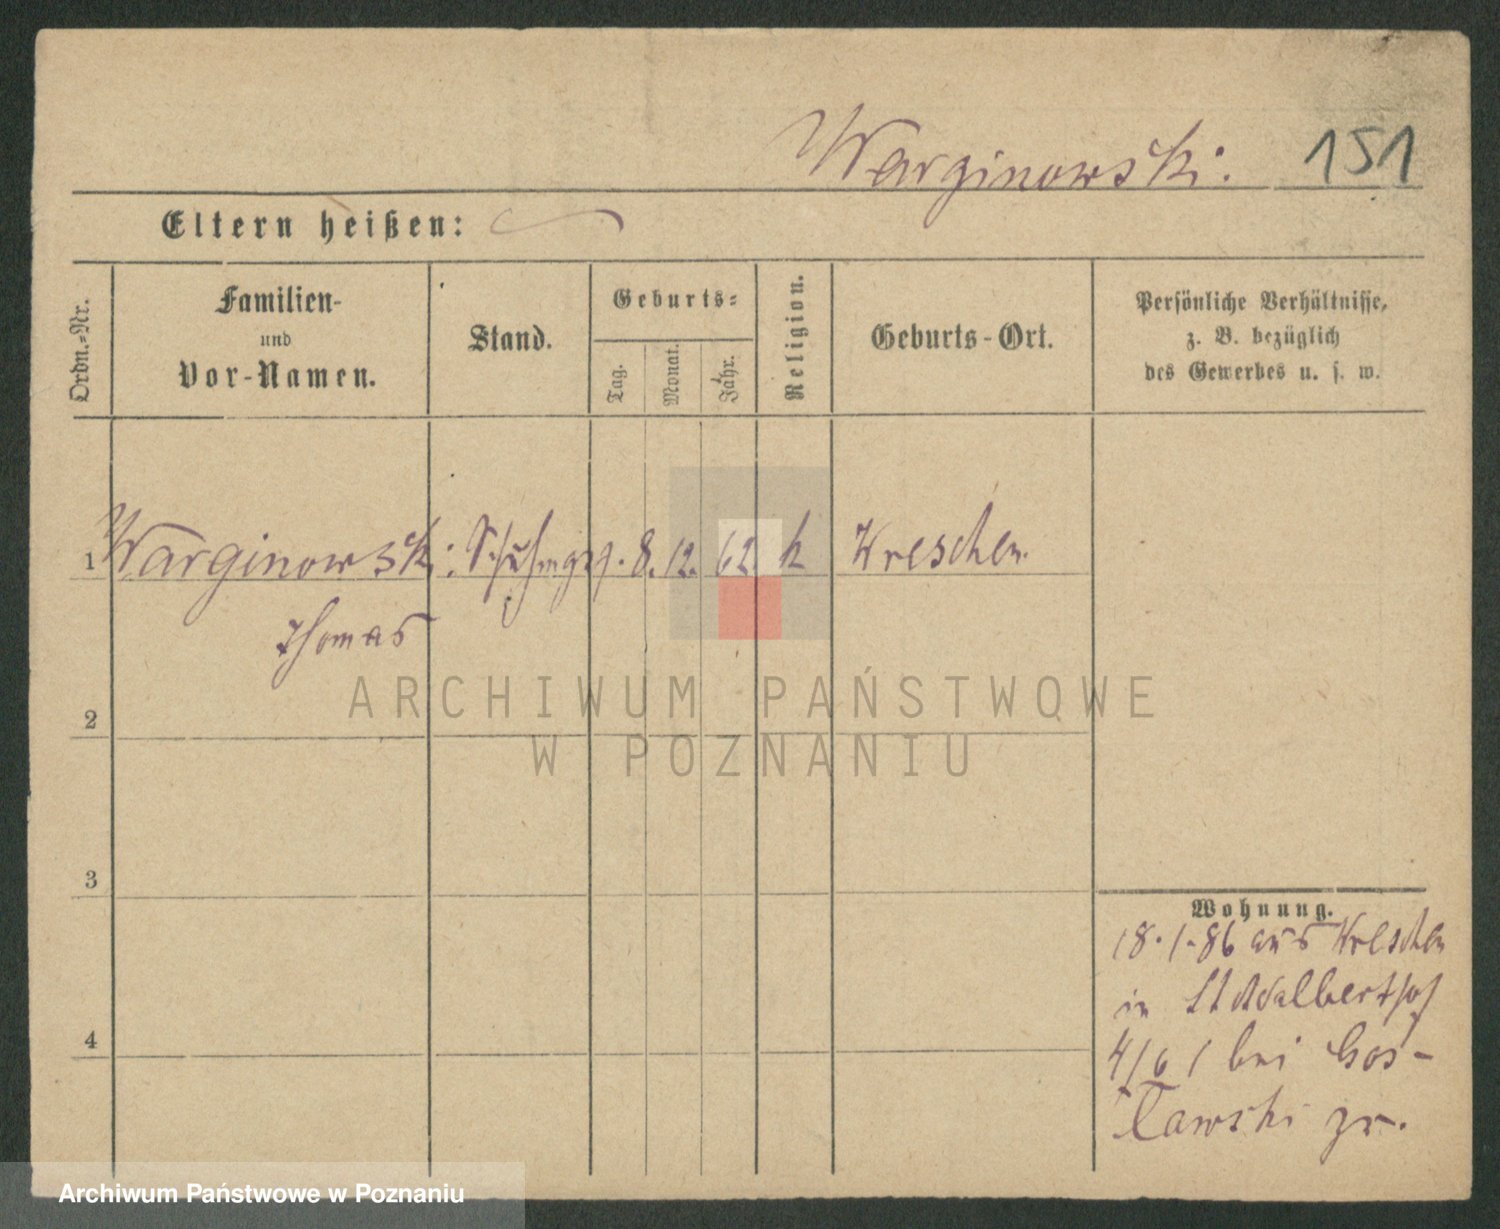 Warginowski. 151
Eltern heißen:
Ordn.-Nr.
Familien-
und
Vor-Namen.
Stand.
Geburts-
Tag.
Monat.
Jahr.
Religion.
Geburts-Ort.
Persönliche Verhältnisse,
z. B. bezüglich
des Gewerbes u. s. w.
1 Warginowski. 8. 12. 62 k Wreschen.
Thomas
2
3
4
Wohnung.
18.1.86 aus Wreschen
in St Adalberthof
4/6 bei Gos-
lawski zr.
ARCHIWUM PAŃSTWOWE
W POZNANIU
Archiwum Państwowe w Poznaniu